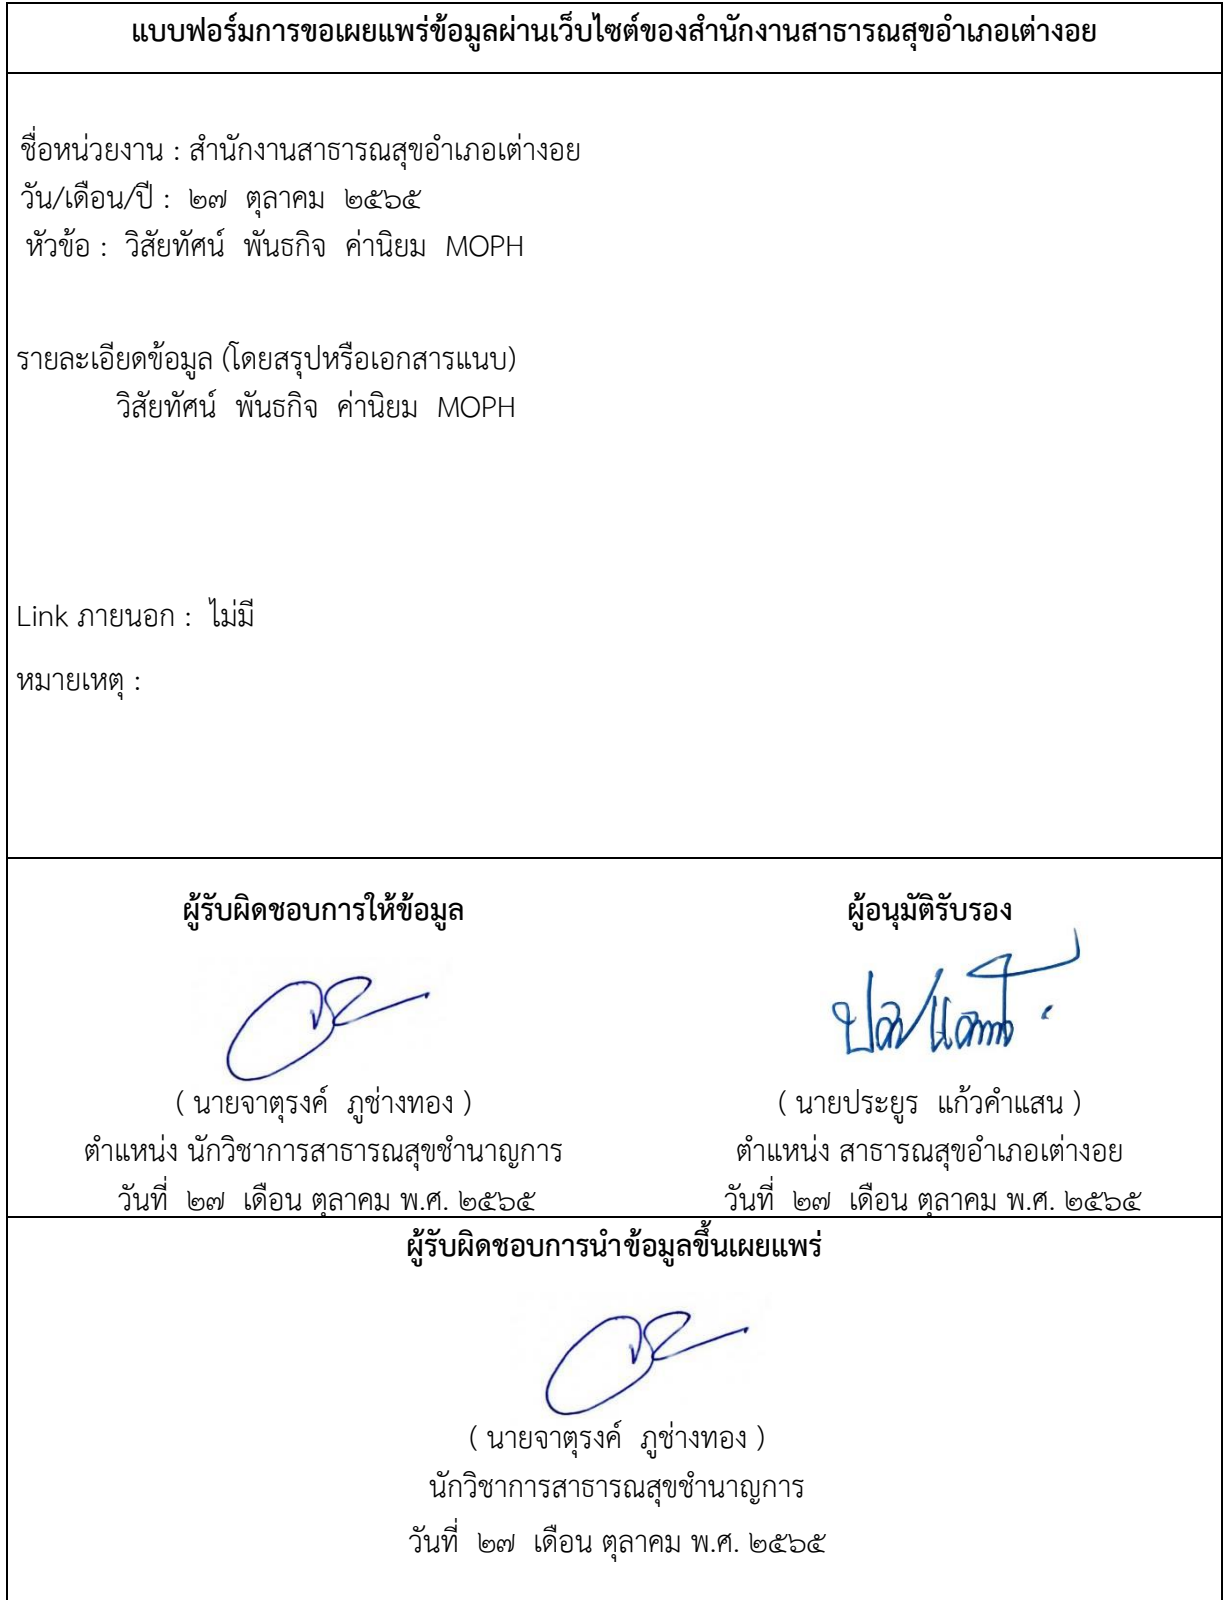 แบบฟอร์มการขอเผยแพร่ข้อมูลผ่านเว็บไซต์ของสำนักงานสาธารณสุขอำเภอเต่างอย
ชื่อหน่วยงาน : สำนักงานสาธารณสุขอำเภอเต่างอย
วัน/เดือน/ปี : ๒๗ ตุลาคม ๒๕๖๕
หัวข้อ : วิสัยทัศน์ พันธกิจ ค่านิยม MOPH
รายละเอียดข้อมูล (โดยสรุปหรือเอกสารแนบ)
วิสัยทัศน์ พันธกิจ ค่านิยม MOPH
Link ภายนอก : ไม่มี
หมายเหตุ :
ผู้รับผิดชอบการให้ข้อมูล
( นายจาตุรงค์ ภูช่างทอง )
ตำแหน่ง นักวิชาการสาธารณสุขชำนาญการ
วันที่ ๒๗ เดือน ตุลาคม พ.ศ. ๒๕๖๕
ผู้อนุมัติรับรอง
( นายประยูร แก้วคำแสน )
ตำแหน่ง สาธารณสุขอำเภอเต่างอย
วันที่ ๒๗ เดือน ตุลาคม พ.ศ. ๒๕๖๕
ผู้รับผิดชอบการนำข้อมูลขึ้นเผยแพร่
( นายจาตุรงค์ ภูช่างทอง )
นักวิชาการสาธารณสุขชำนาญการ
วันที่ ๒๗ เดือน ตุลาคม พ.ศ. ๒๕๖๕